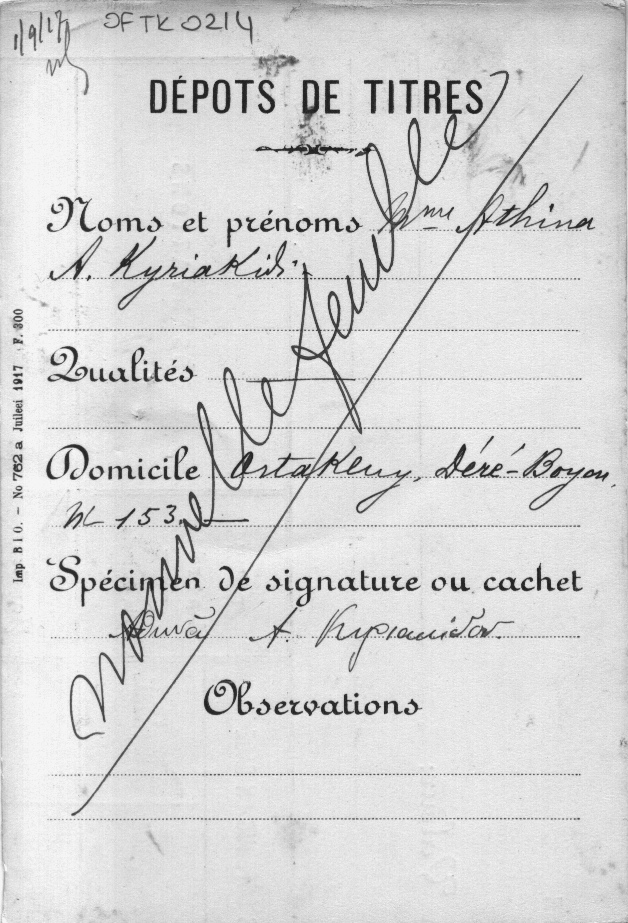 1/9/17
OFTK 0214
DÉPOTS DE TITRES
Noms et prénoms Mme Athina
A. Kyriakidi
Qualités
Domicile Ortakeuy, Déré-Boyou,
No 153.
Spécimen de signature ou cachet
Αθηνά Α. Κυριακίδου
Observations
nouvelle feuille
Imp. B I O. – No 762 a Juileei 1917 F. 300